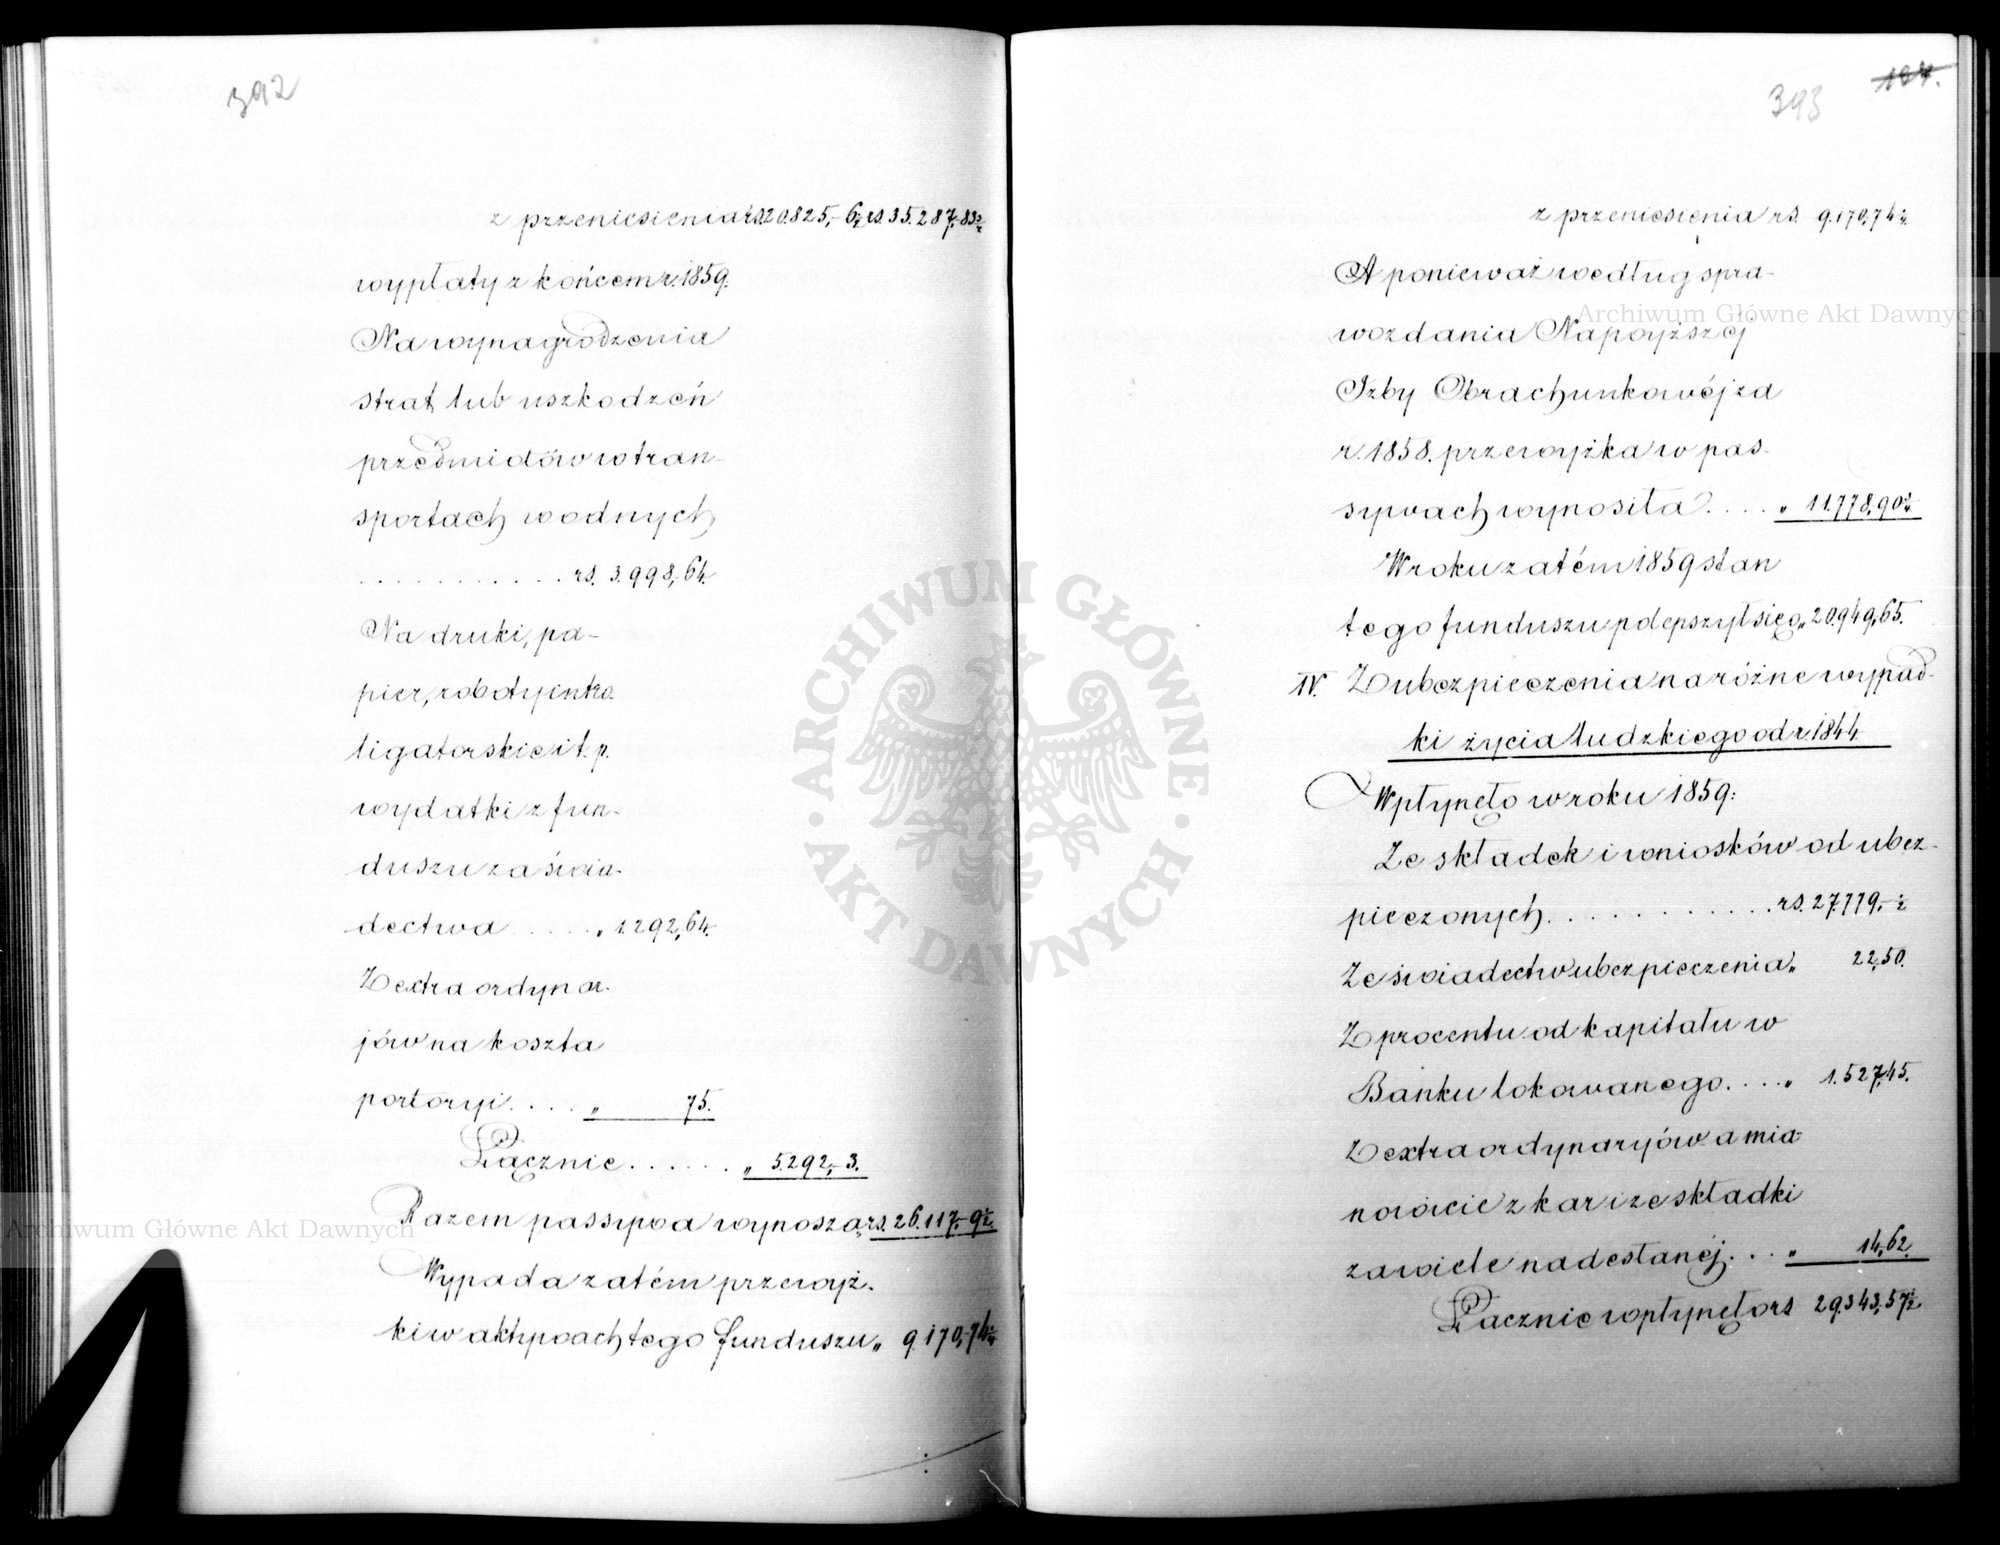 392
z przeniesienia rs. 20.825,-6½ rs. 35.287,83½
wypłaty z końcem r. 1859.
Na wynagrodzenia
strat lub uszkodzeń
przedmiotów w tran-
sportach wodnych
. . . . . . . . . . . rs. 3.998,64.
Na druki, pa-
pier, roboty intro
ligatorskie i t. p.
wydatki z fun-
duszu za świa-
dectwa . . . . . „ 1.292,64.
Z extraordynar-
jów na koszta
portoryi . . . . „ 75.
Łącznie . . . . . . „ 5.292,-3.
Razem passywa wynoszą rs. 26.117,-9½.
Wypada zatém przewyż-
ki w aktywach tego funduszu „ 9.170,74
393
z przeniesienia rs. 9.170,74
A ponieważ według spra-
wozdania Najwyższej
Izby Obrachunkowéj za
r. 1858. przewyżka w pas-
sywach wynosiła . . . . „ 11.778,90
W roku zatém 1859 stan
tego funduszu polepszył się o „ 20.949,65.
IV. Z ubezpieczenia na różne wypad-
ki życia ludzkiego od r. 1844.
Wpłynęło w roku 1859:
Ze składek i wniosków od ubez-
pieczonych . . . . . . . . . . . . rs. 27.779,-½
Ze świadectw ubezpieczenia „ 22,50.
Z procentu od kapitału w
Banku lokowanego . . . . „ 1.527,45.
Z extraordynaryjów a mia-
nowicie z kar i ze składki
zawiele nadesłanéj . . . „ 14,62.
Łącznie wpłynęło rs 29.343,57½
Archiwum Główne Akt Dawnych
Archiwum Główne Akt Dawnych
· ARCHIWUM GŁÓWNE · AKT DAWNYCH